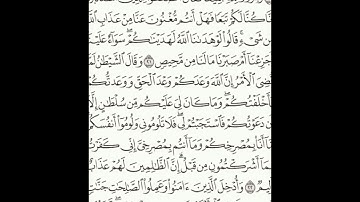 نَّا كُنَّا لَكُمْ تَبَعًا فَهَلْ أَنتُم مُّغْنُونَ عَنَّا مِنْ عَذَابِ اللَّهِ
مِن شَيْءٍ ۚ قَالُوا لَوْ هَدَىٰنَا اللَّهُ لَهَدَيْنَٰكُمْ ۖ سَوَآءٌ عَلَيْنَ
أَجَزِعْنَآ أَمْ صَبَرْنَا مَا لَنَا مِن مَّحِيصٍ ٢١ وَقَالَ الشَّيْطَٰنُ لَمَّا
قُضِيَ الْأَمْرُ إِنَّ اللَّهَ وَعَدَكُمْ وَعْدَ الْحَقِّ وَوَعَدتُّكُمْ
فَأَخْلَفْتُكُمْ ۖ وَمَا كَانَ لِيَ عَلَيْكُم مِّن سُلْطَٰنٍ إِلَّآ
أَن دَعَوْتُكُمْ فَاسْتَجَبْتُمْ لِي ۖ فَلَا تَلُومُونِي وَلُومُوٓا أَنفُسَكُم
مَّآ أَنَا۠ بِمُصْرِخِكُمْ وَمَآ أَنتُم بِمُصْرِخِيَّ ۖ إِنِّي كَفَرْتُ
بِمَآ أَشْرَكْتُمُونِ مِن قَبْلُ ۗ إِنَّ الظَّٰلِمِينَ لَهُمْ عَذَابٌ
أَلِيمٌ ٢٢ وَأُدْخِلَ الَّذِينَ ءَامَنُوا وَعَمِلُوا الصَّٰلِحَٰتِ جَنَّٰتٍ